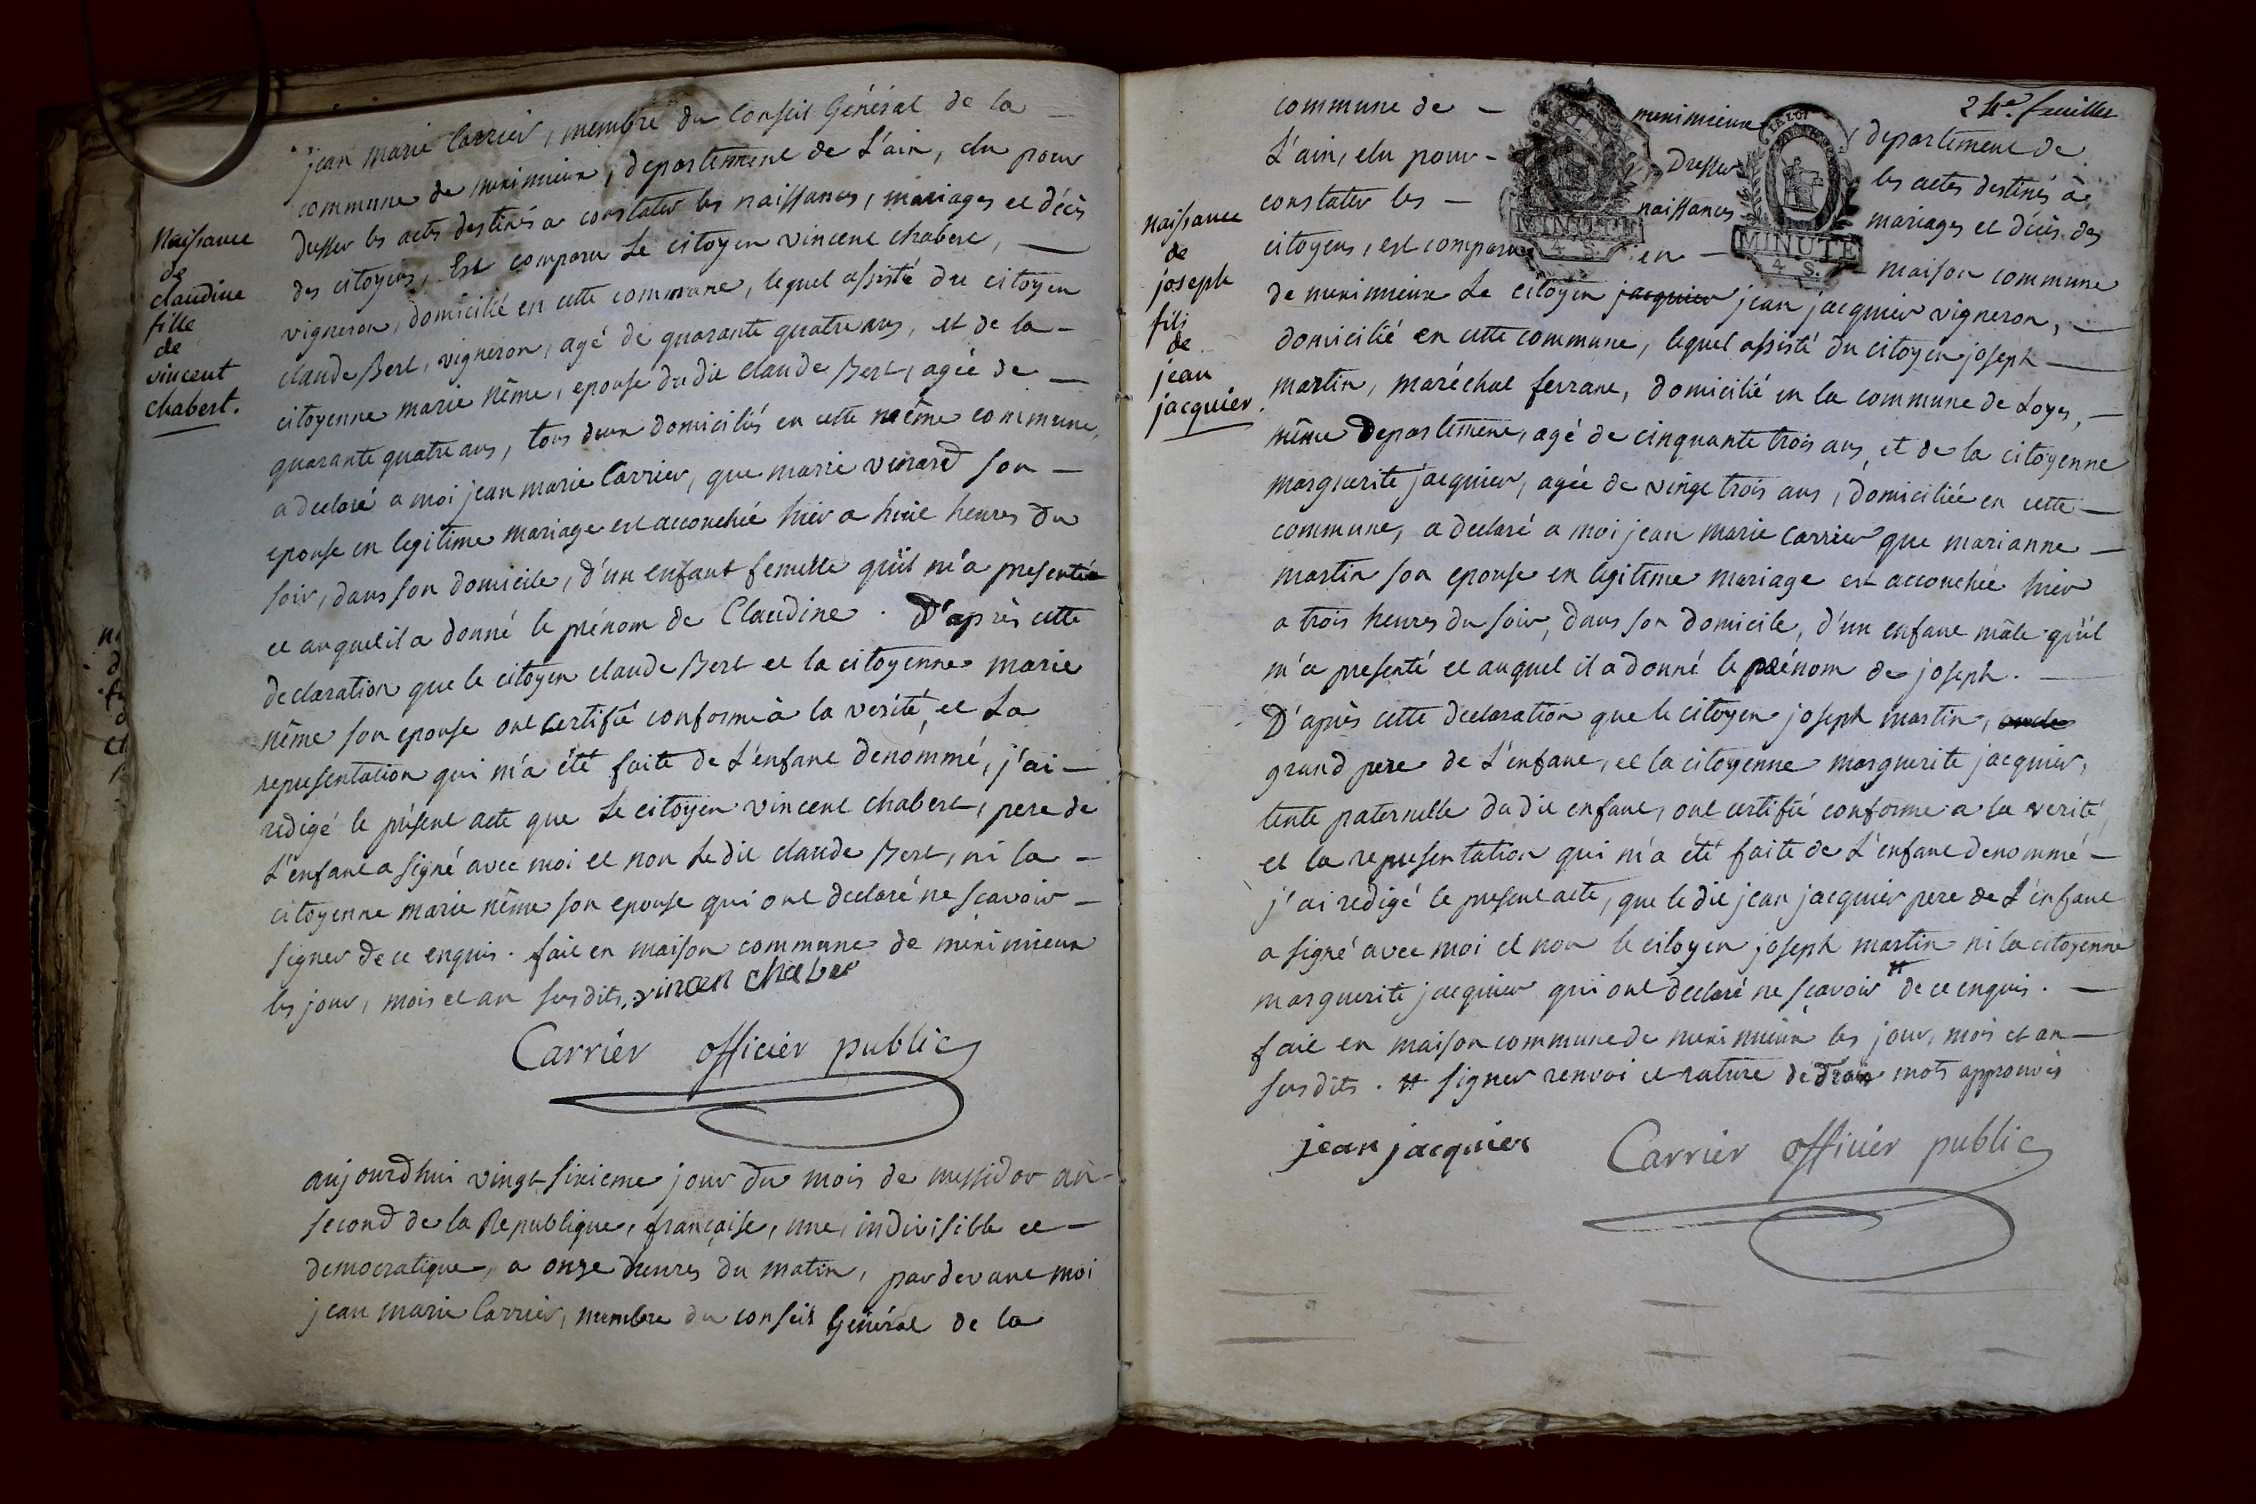 jean marie Carrier, membre du Conseil Général de la
commune de meximieux, departement de L'ain, elu pour
dresser les actes destinés a constater les naissances, mariages et décès
des citoyens, Est comparu Le citoyen vincent chabert,
vigneron, domicilié en cette commune, lequel assisté du citoyen
claude Bert, vigneron, agé de quarante quatre ans, et de la
citoyenne marie même, epouse du dit claude Bert, agée de
quarante quatre ans, tous deux domiciliés en cette même commune,
a declaré a moi jean marie Carrier, que marie son
epouse en legitime mariage est accouchée hier a huit heures du
soir, dans son domicile, d'un enfant femelle qu'il m'a presenté
et auquel il a donné le prénom de Claudine. D'après cette
declaration que le citoyen claude Bert et la citoyenne marie
même son epouse ont certifié conforme à la verité, et La
representation qui m'a été faite de L'enfant denommé, j'ai
redigé le présent acte que Le citoyen vincent chabert, pere de
L'enfant a signé avec moi et non Le dit claude Bert, ni la
citoyenne marie même son epouse qui ont declaré ne scavoir
signer de ce enquis. fait en maison commune de meximieux
les jour, mois et an susdits. vincen chaber
Carrier officier public
aujourdhui vingt sixieme jour du mois de messidor an
second de la Republique, française, une, indivisible et
democratique, a onze heures du matin, pardevant moi
jean marie Carrier, membre du conseil Général de la
Naissance
de
claudine
fille
de
vincent
chabert.
24e. feuillet
commune de meximieux departement de
L'ain, elu pour Dresser les actes destinés à
constater les naissances mariages et décès des
citoyens, est comparu en maison commune
de meximieux Le citoyen jacquier jean jacquier vigneron,
domicilié en cette commune, lequel assisté du citoyen joseph
martin, maréchal ferrant, domicilié en la commune de Loyes,
même Departement, agé de cinquante trois ans, et de la citoyenne
marguerite jacquier, agée de vingt trois ans, domiciliée en cette
commune, a declaré a moi jean marie Carrier que marianne
martin son epouse en legitime mariage est accouchée hier
a trois heures du soir, dans son domicile, d'un enfant mâle qu'il
m'a presenté et auquel il a donné le prénom de joseph.
D'après cette declaration que le citoyen joseph martin, oncle
grand pere de L'enfant, et la citoyenne marguerite jacquier,
tente paternelle du dit enfant, ont certifié conforme a la verité,
et la representation qui m'a été faite de L'enfant denommé
j'ai redigé le present acte, que le dit jean jacquier pere de L'enfant
a signé avec moi et non le citoyen joseph martin ni la citoyenne
marguerite jacquier qui ont declaré ne scavoir # de ce enquis.
fait en maison commune de meximieux les jour, mois et an
susdits. # signer renvoi et rature de mots approuvés
jean jacquier Carrier officier public
naissance
de
joseph
fils
de
jean
jacquier.
LA LOI
MINUTE
4. S.
MINUTE
4. S.